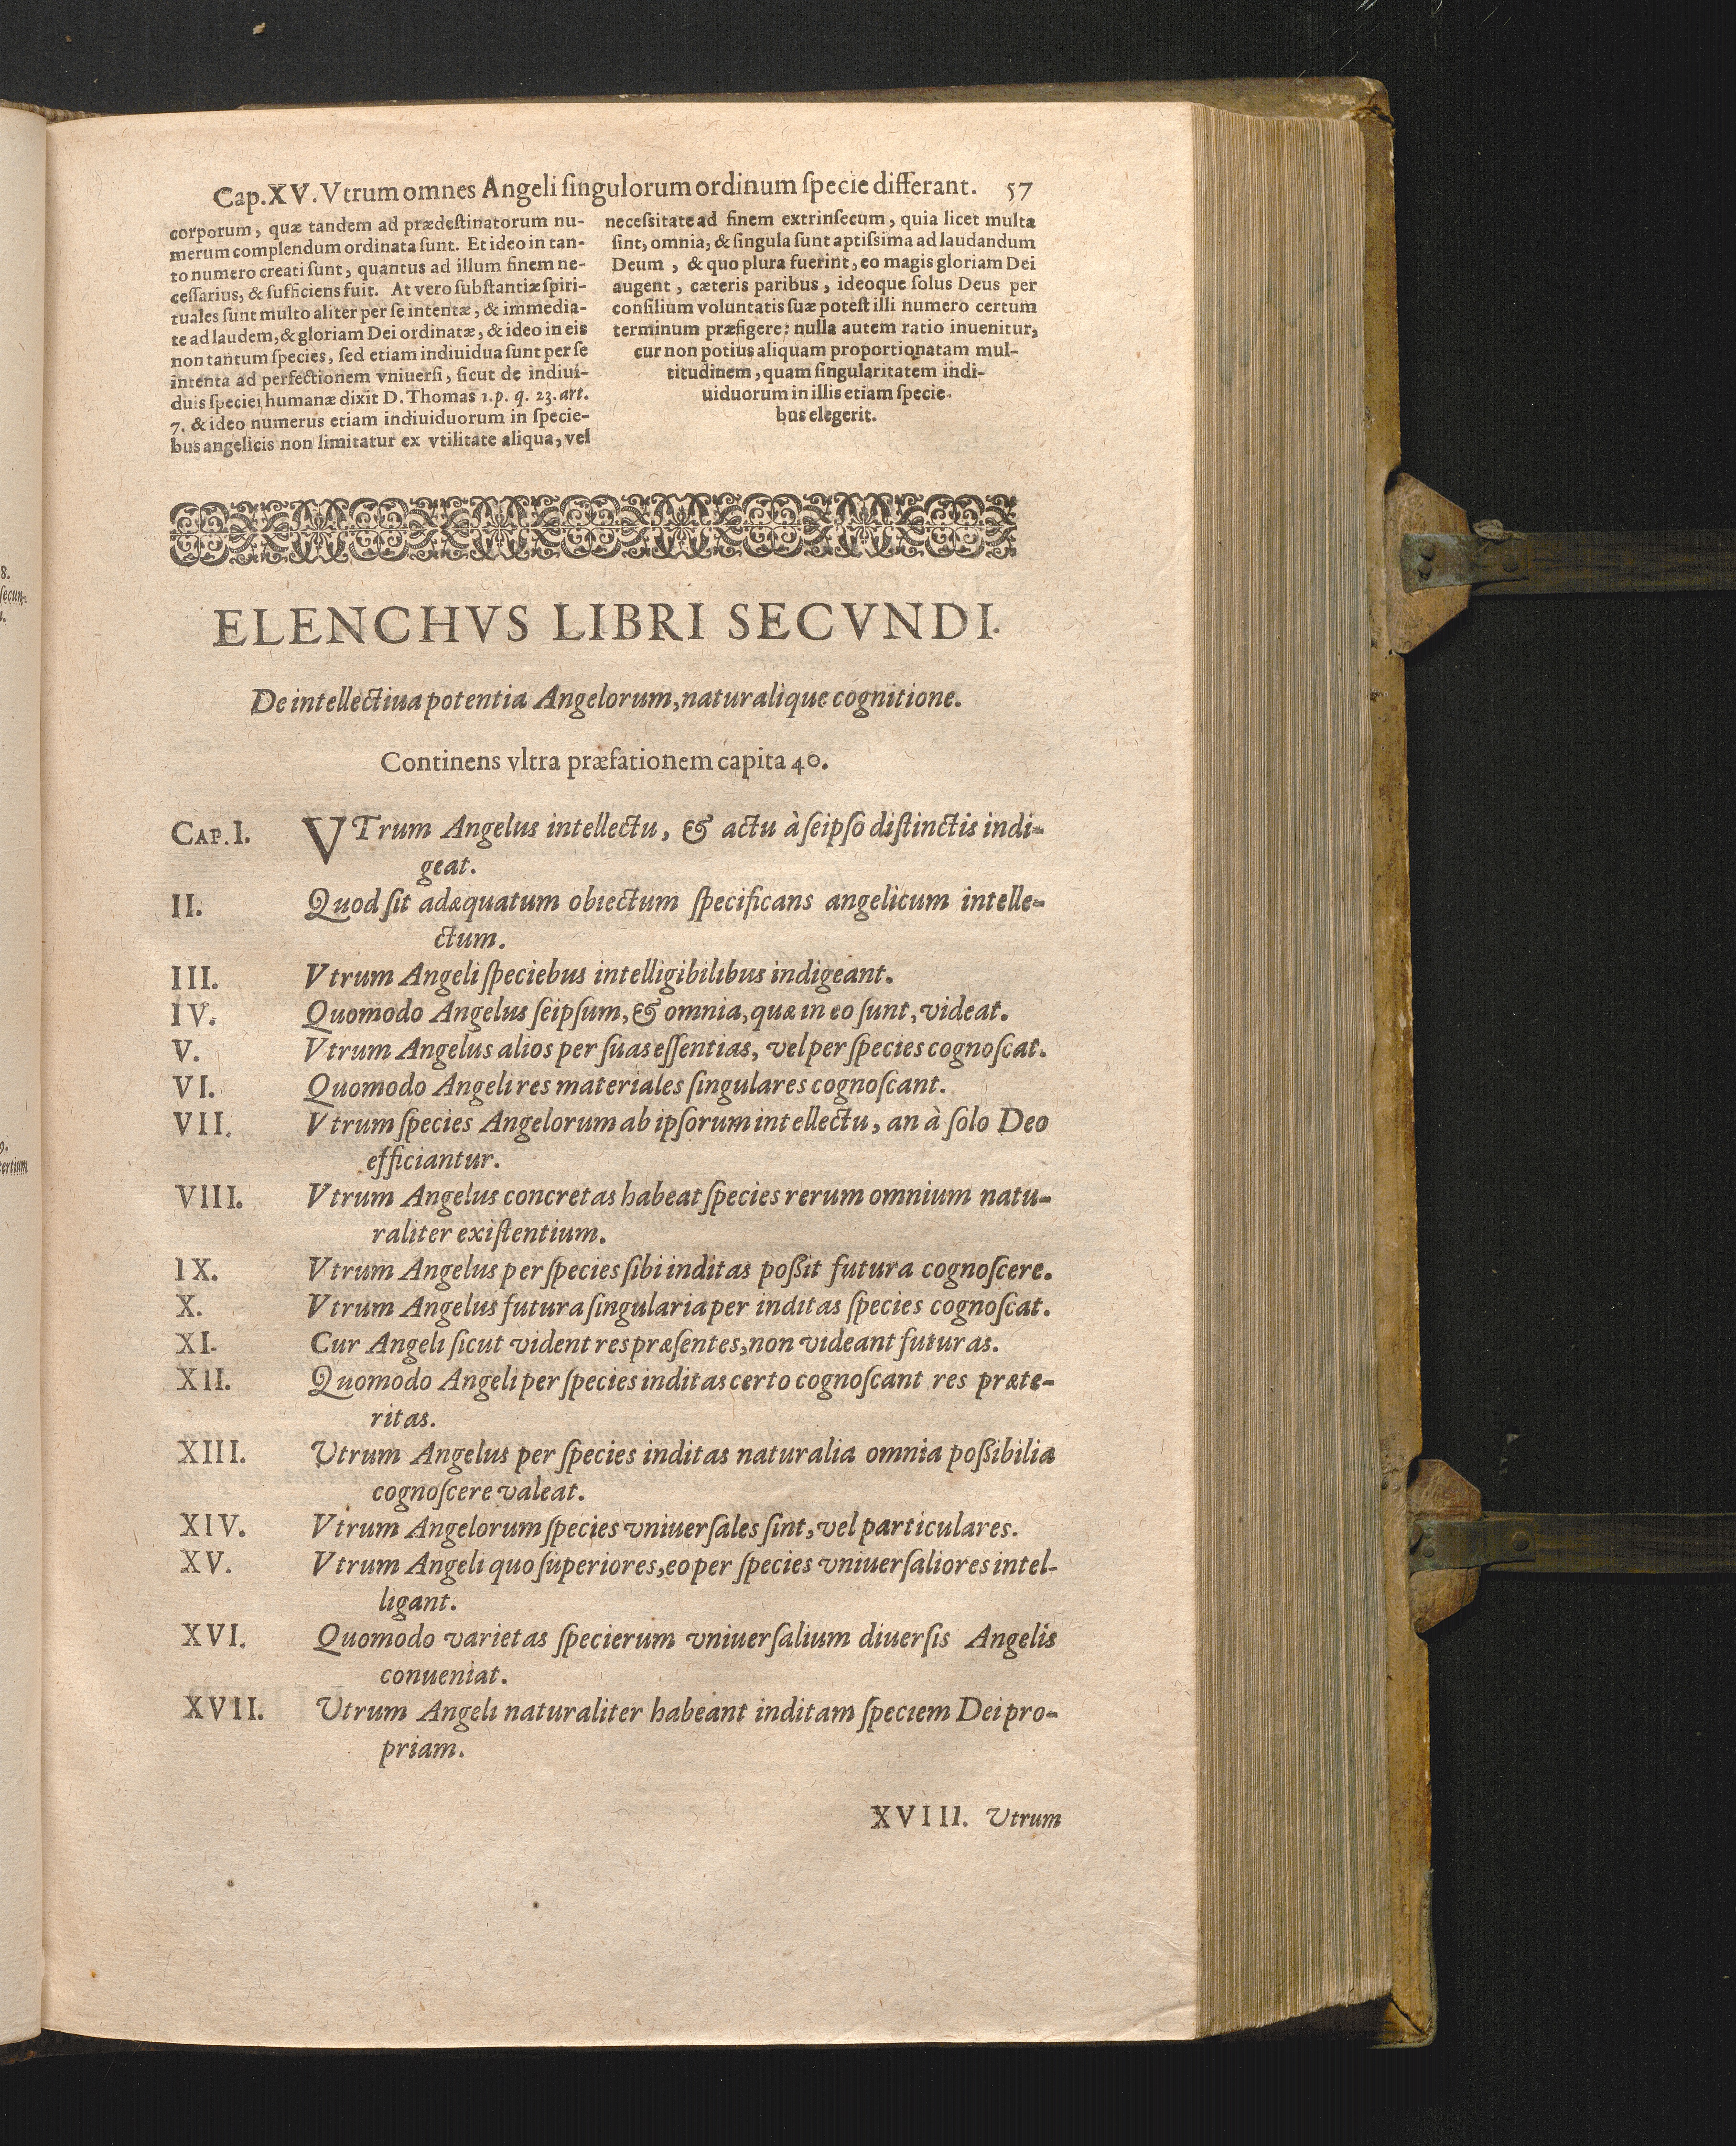 Cap.XV. Vtrum omnes Angeli singulorum ordinum specie differant. 57
corporum, quæ tandem ad prædestinatorum nu-
merum complendum ordinata sunt. Et ideo in tan-
to numero creati sunt, quantus ad illum finem ne-
cessarius, & sufficiens fuit. At vero substantiæ spiri-
tuales sunt multo aliter per se intentæ, & immedia-
te ad laudem, & gloriam Dei ordinatæ, & ideo in eis
non tantum species, sed etiam indiuidua sunt per se
intenta ad perfectionem vniuersi, sicut de indiui-
duis speciei humanæ dixit D. Thomas 1.p. q. 23. art.
7. & ideo numerus etiam indiuiduorum in specie-
bus angelicis non limitatur ex vtilitate aliqua, vel
necessitate ad finem extrinsecum, quia licet multa
sint, omnia, & singula sunt aptissima ad laudandum
Deum, & quo plura fuerint, eo magis gloriam Dei
augent, cæteris paribus, ideoque solus Deus per
consilium voluntatis suæ potest illi numero certum
terminum præfigere: nulla autem ratio inuenitur,
cur non potius aliquam proportionatam mul-
titudinem, quam singularitatem indi-
uiduorum in illis etiam specie-
bus elegerit.
ELENCHVS LIBRI SECVNDI.
De intellectiua potentia Angelorum, naturalique cognitione.
Continens vltra præfationem capita 40.
CAP. I. VTrum Angelus intellectu, & actu à seipso distinctis indi-
geat.
II. Quod sit adæquatum obiectum specificans angelicum intelle-
ctum.
III. Vtrum Angeli speciebus intelligibilibus indigeant.
IV. Quomodo Angelus seipsum, & omnia, quæ in eo sunt, videat.
V. Vtrum Angelus alios per suas essentias, vel per species cognoscat.
VI. Quomodo Angeli res materiales singulares cognoscant.
VII. Vtrum species Angelorum ab ipsorum intellectu, an à solo Deo
efficiantur.
VIII. Vtrum Angelus concretas habeat species rerum omnium natu-
raliter existentium.
IX. Vtrum Angelus per species sibi inditas possit futura cognoscere.
X. Vtrum Angelus futura singularia per inditas species cognoscat.
XI. Cur Angeli sicut vident res præsentes, non videant futuras.
XII. Quomodo Angeli per species inditas certo cognoscant res præte-
ritas.
XIII. Vtrum Angelus per species inditas naturalia omnia possibilia
cognoscere valeat.
XIV. Vtrum Angelorum species vniuersales sint, vel particulares.
XV. Vtrum Angeli quo superiores, eo per species vniuersaliores intel-
ligant.
XVI. Quomodo varietas specierum vniuersalium diuersis Angelis
conueniat.
XVII. Vtrum Angeli naturaliter habeant inditam speciem Dei pro-
priam.
XVIII. Vtrum